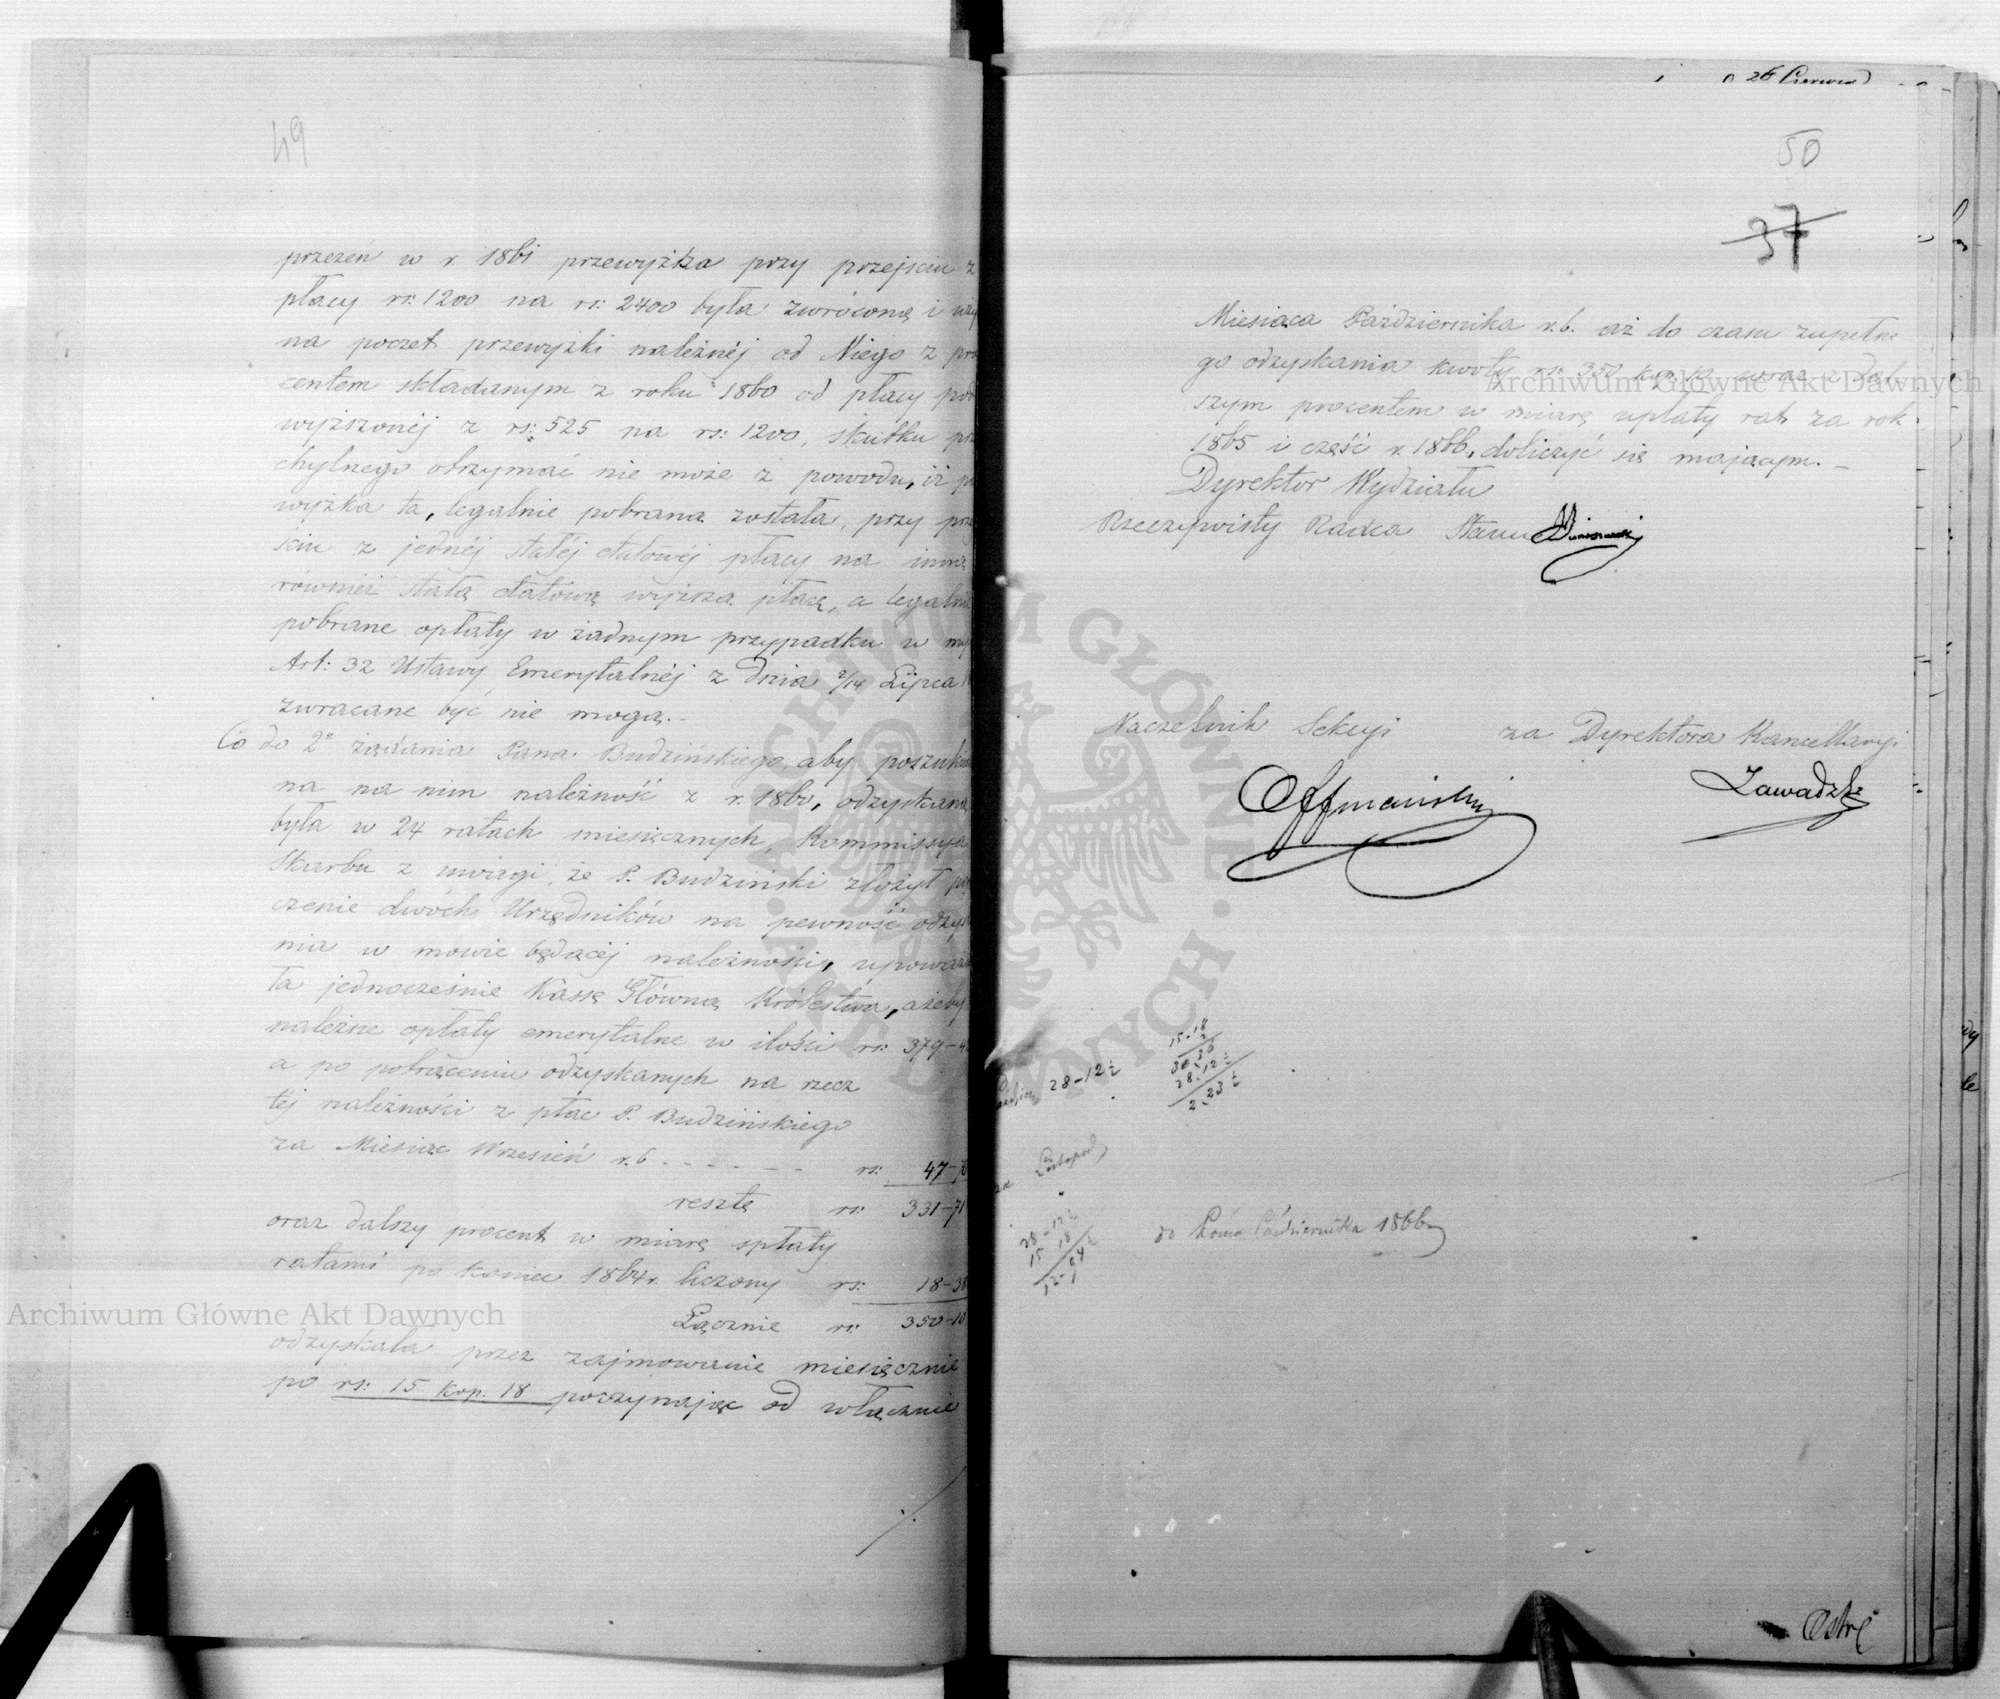 49
przezeń w r. 1861 przewyżka przy przejściu z
płacy rs: 1200 na rs: 2400 była zwróconą i
na poczet przewyżki należnéj od Niego z pro
centem składanym z roku 1860 od płacy pod
wyższonéj z rs: 525 na rs: 1200, skutku prz
chylnego otrzymać nie może z powodu, iż p
wyżka ta, legalnie pobraną została, przy prze
ściu z jednéj stałéj etatowéj płacy na inną
również stałą etatową wyższą płacę, a legalnie
pobrane opłaty w żadnym przypadku w my
Art: 32 Ustawy Emerytalnéj z dnia 2/14 Lipca
zwracane być nie mogą.-
Co do 2° żądania Pana Budzińskiego, aby poszuki
na na nim należność z r. 1860, odzyskaną
była w 24 ratach miesięcznych, Kommissya
Skarbu z uwagi, że P. Budziński złożył porę
czenie dwóch Urzędników na pewność odzys
nia w mowie będącéj należności, upoważn
ta jednocześnie Kassę Główną Królestwa, ażeby
należne opłaty emerytalne w ilości rs: 379-4
a po potrąceniu odzyskanych na rzecz
téj należności z płac P. Budzińskiego
za Miesiąc Wrzesień r. b. - - - - - rs: 47-70
resztę rs: 331-71
oraz dalszy procent w miarę spłaty
ratami po koniec 1864 r. liczony rs: 18-38
Łącznie rs: 350-10
odzyskała przez zajmowanie miesięcznie
po rs: 15 kop. 18 poczynając od włącznie
./.
26 Czerwca
50
37
Miesiąca Października r. b. aż do czasu zupełne
go odzyskania kwoty rs: 350 kop. 10 wraz z dal
szym procentem w miarę upłaty rat za rok
1865 i część r. 1866, doliczyć się mającym. -
Dyrektor Wydziału
Rzeczywisty Radca Stanu
Naczelnik Sekcyi za Dyrektora Kancellaryi
Offmański Zawadzki
15.18
2
30.36
28-12½ 28.12½
2.23½
za Listopad
28-12½
15 18
12-94½
do Końca Października 1866
Archiwum Główne Akt Dawnych
Archiwum Główne Akt Dawnych
ARCHIWUM GŁÓWNE AKT DAWNYCH